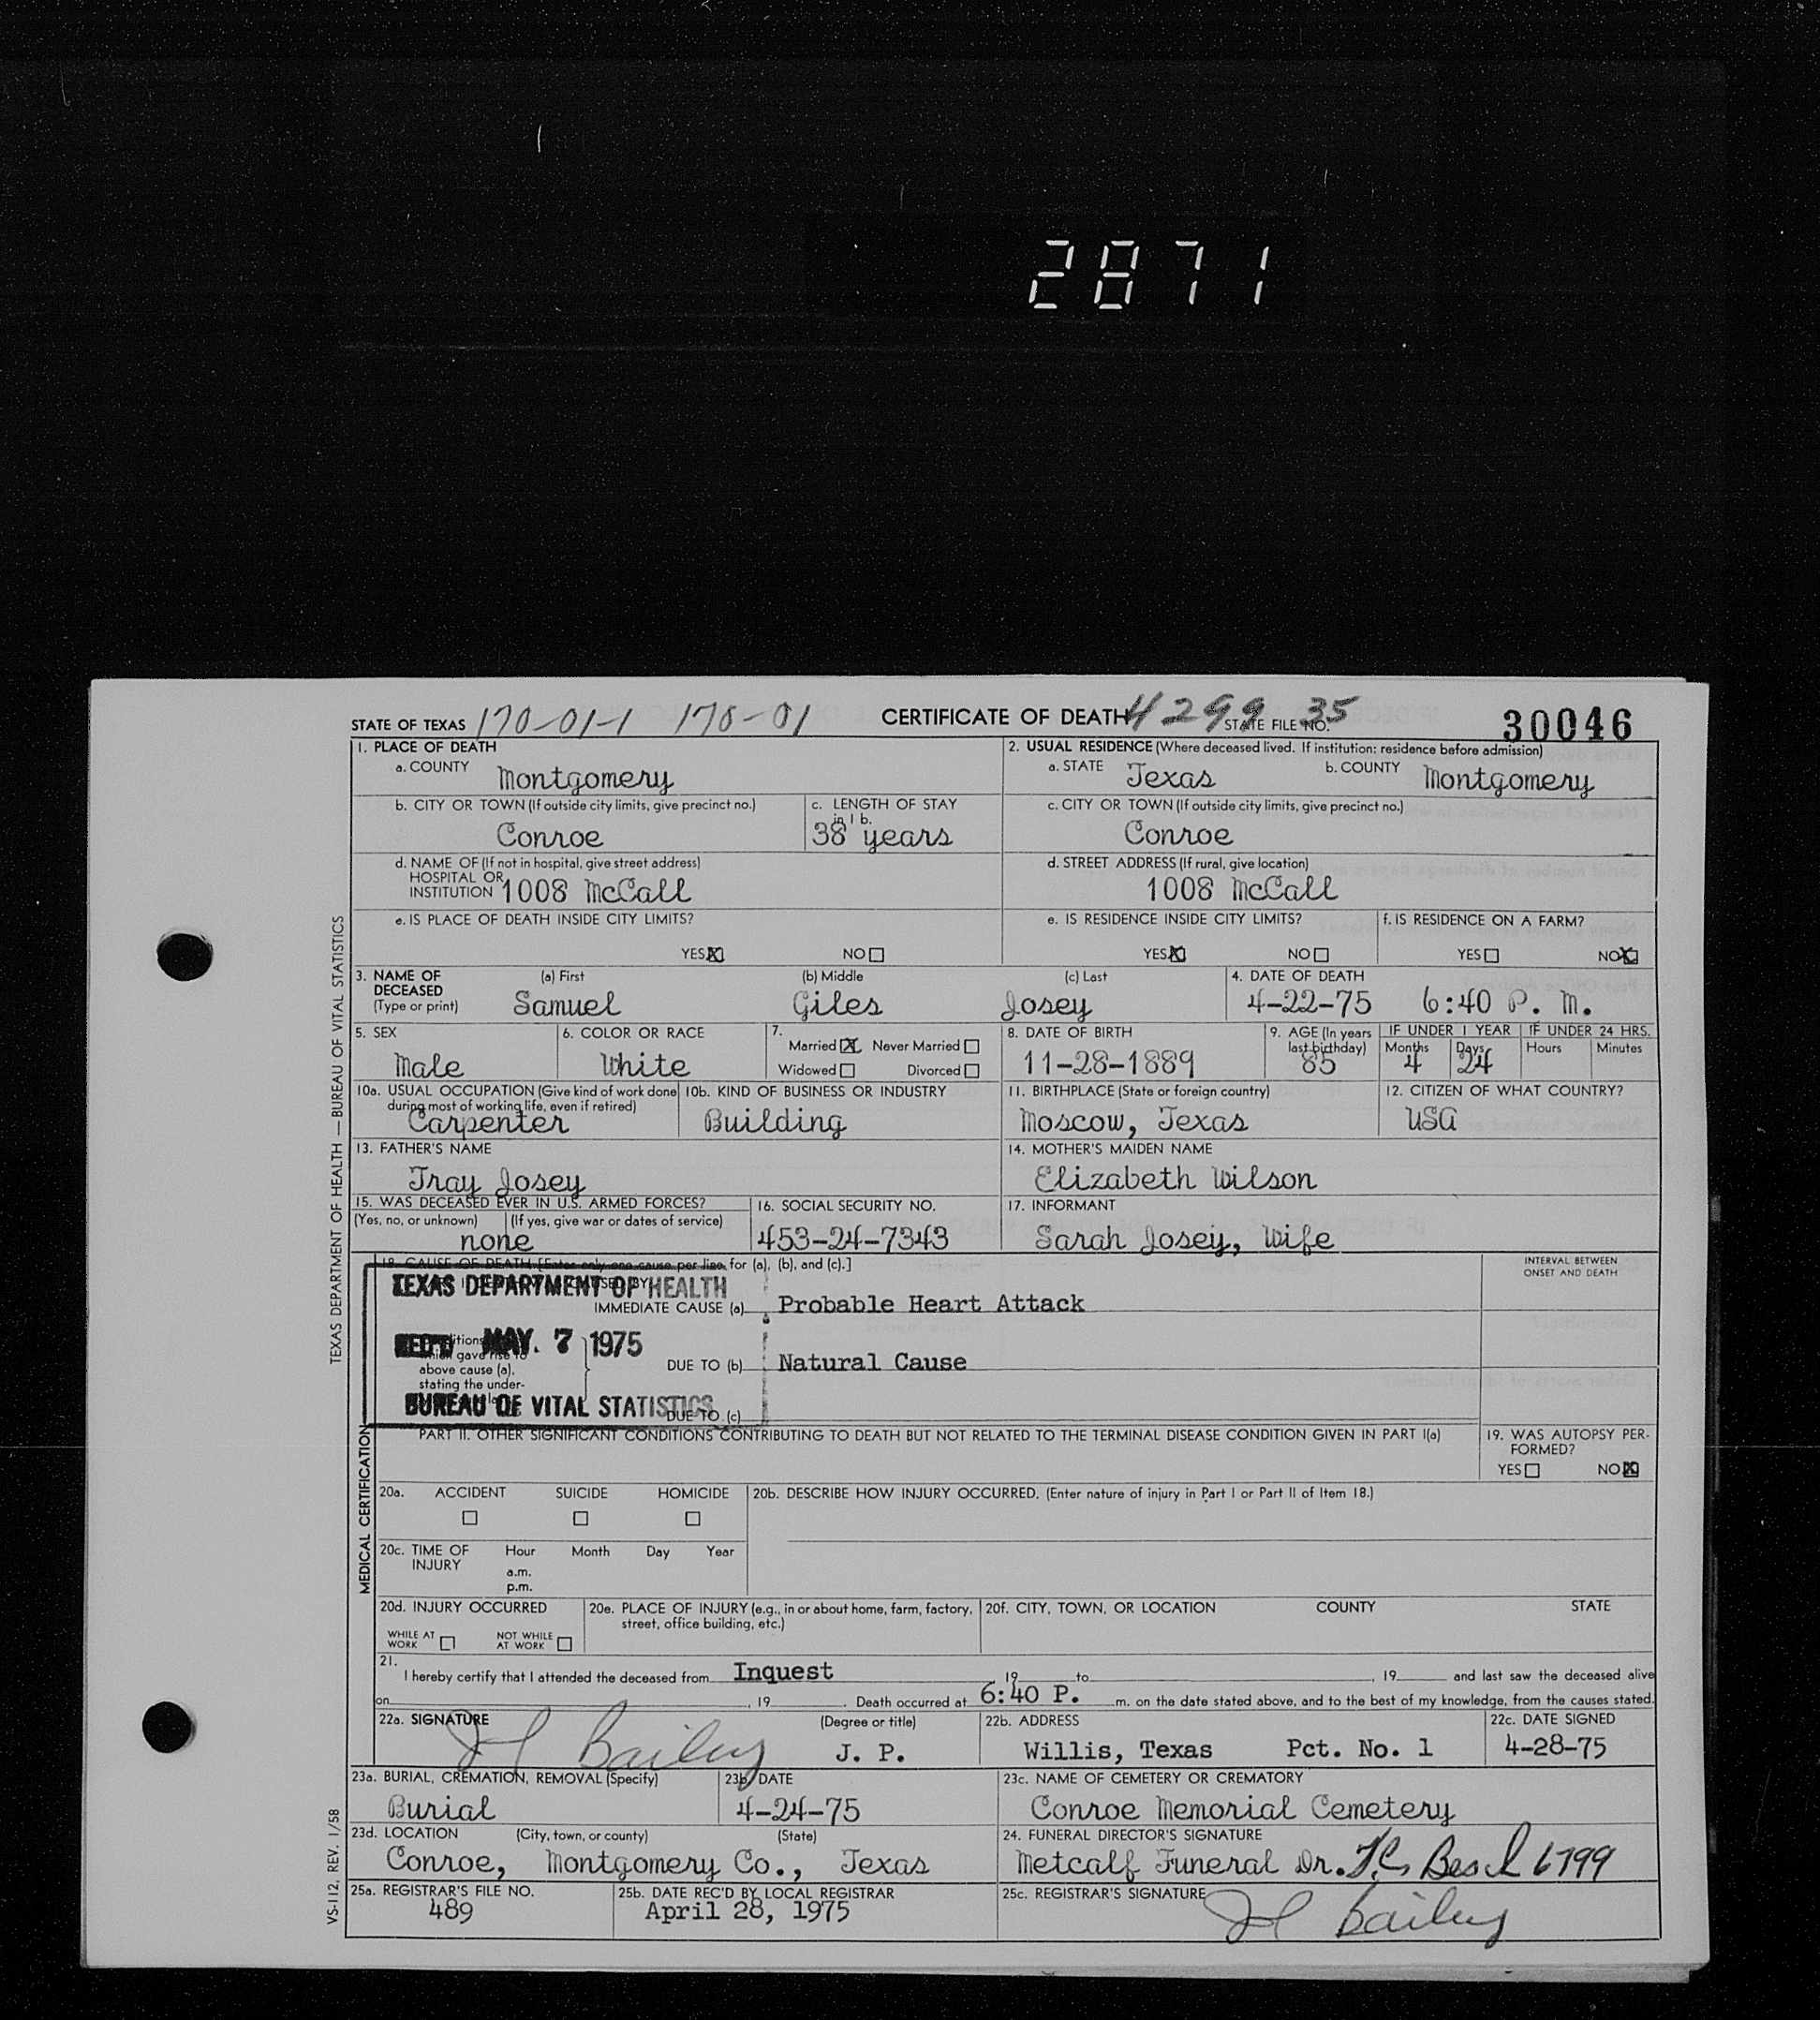 2871
STATE OF TEXAS 170-01-1 170-01 CERTIFICATE OF DEATH 4299 STATE FILE NO. 35 30046
1. PLACE OF DEATH
a. COUNTY Montgomery
2. USUAL RESIDENCE (Where deceased lived. If institution: residence before admission)
a. STATE Texas b. COUNTY Montgomery
b. CITY OR TOWN (If outside city limits, give precinct no.) Conroe
c. LENGTH OF STAY in 1 b. 38 years
c. CITY OR TOWN (If outside city limits, give precinct no.) Conroe
d. NAME OF (If not in hospital, give street address)
HOSPITAL OR
INSTITUTION 1008 McCall
d. STREET ADDRESS (If rural, give location)
1008 McCall
e. IS PLACE OF DEATH INSIDE CITY LIMITS?
YES X NO
e. IS RESIDENCE INSIDE CITY LIMITS?
YES X NO
f. IS RESIDENCE ON A FARM?
YES NO X
3. NAME OF DECEASED (Type or print)
(a) First (b) Middle (c) Last
Samuel Giles Josey
4. DATE OF DEATH
4-22-75 6:40 P. M.
5. SEX
Male
6. COLOR OR RACE
White
7.
Married X Never Married
Widowed Divorced
8. DATE OF BIRTH
11-28-1889
9. AGE (In years last birthday)
85
IF UNDER 1 YEAR
Months 4 Days 24
IF UNDER 24 HRS.
Hours Minutes
10a. USUAL OCCUPATION (Give kind of work done during most of working life, even if retired)
Carpenter
10b. KIND OF BUSINESS OR INDUSTRY
Building
11. BIRTHPLACE (State or foreign country)
Moscow, Texas
12. CITIZEN OF WHAT COUNTRY?
USA
13. FATHER'S NAME
Tray Josey
14. MOTHER'S MAIDEN NAME
Elizabeth Wilson
15. WAS DECEASED EVER IN U.S. ARMED FORCES?
(Yes, no, or unknown) (If yes, give war or dates of service)
none
16. SOCIAL SECURITY NO.
453-24-7343
17. INFORMANT
Sarah Josey, Wife
18. CAUSE OF DEATH [Enter only one cause per line for (a), (b), and (c).]
INTERVAL BETWEEN
ONSET AND DEATH
TEXAS DEPARTMENT OF HEALTH
IMMEDIATE CAUSE (a) Probable Heart Attack
REC'D MAY. 7 1975
which gave rise to
above cause (a),
stating the under-
DUE TO (b) Natural Cause
BUREAU OF VITAL STATISTICS
DUE TO (c)
PART II. OTHER SIGNIFICANT CONDITIONS CONTRIBUTING TO DEATH BUT NOT RELATED TO THE TERMINAL DISEASE CONDITION GIVEN IN PART I(a)
19. WAS AUTOPSY PER-
FORMED?
YES NO X
20a. ACCIDENT SUICIDE HOMICIDE
20b. DESCRIBE HOW INJURY OCCURRED. (Enter nature of injury in Part I or Part II of Item 18.)
20c. TIME OF INJURY Hour Month Day Year
a.m.
p.m.
20d. INJURY OCCURRED
WHILE AT WORK NOT WHILE AT WORK
20e. PLACE OF INJURY (e.g., in or about home, farm, factory, street, office building, etc.)
20f. CITY, TOWN, OR LOCATION COUNTY STATE
21.
I hereby certify that I attended the deceased from Inquest, 19 to , 19 and last saw the deceased alive
on , 19 . Death occurred at 6:40 P. m. on the date stated above, and to the best of my knowledge, from the causes stated.
22a. SIGNATURE (Degree or title)
Bailey J. P.
22b. ADDRESS
Willis, Texas Pct. No. 1
22c. DATE SIGNED
4-28-75
23a. BURIAL, CREMATION, REMOVAL (Specify)
Burial
23b. DATE
4-24-75
23c. NAME OF CEMETERY OR CREMATORY
Conroe Memorial Cemetery
23d. LOCATION (City, town, or county) (State)
Conroe, Montgomery Co., Texas
24. FUNERAL DIRECTOR'S SIGNATURE
Metcalf Funeral Dr. 6799
25a. REGISTRAR'S FILE NO.
489
25b. DATE REC'D BY LOCAL REGISTRAR
April 28, 1975
25c. REGISTRAR'S SIGNATURE
Bailey
TEXAS DEPARTMENT OF HEALTH — BUREAU OF VITAL STATISTICS
MEDICAL CERTIFICATION
VS-112, REV. 1/58